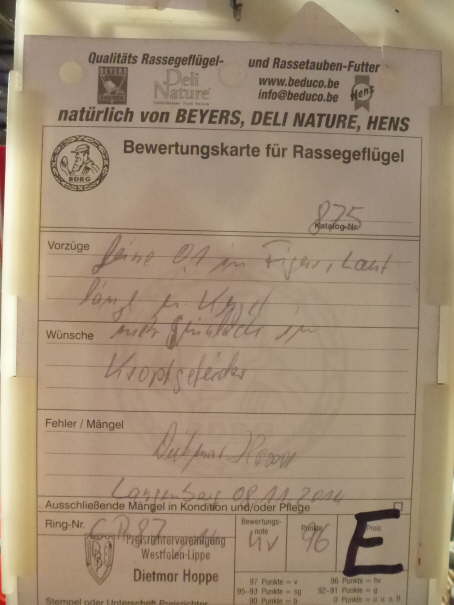 Qualitäts Rassegeflügel- und Rassetauben-Futter
BEYERS Deli Nature www.beduco.be
info@beduco.be Hens
natürlich von BEYERS, DELI NATURE, HENS
BDRG
Bewertungskarte für Rassegeflügel
875
Katalog-Nr.
Vorzüge feine 0,1 in Figur, Lauf
Wünsche
Kropfgefieder
Fehler / Mängel
Langenberg 08.11.2014
Ausschließende Mängel in Kondition und/oder Pflege
Ring-Nr.
Bewertungs-note hv
Punkte 96
Preis E
Preisrichtervereinigung
Westfalen-Lippe
Dietmar Hoppe
97 Punkte = v 96 Punkte = hv
95-93 Punkte = sg 92-91 Punkte = g
90 Punkte = b 0 Punkte = o u. n
Stempel oder Unterschrift Preisrichter